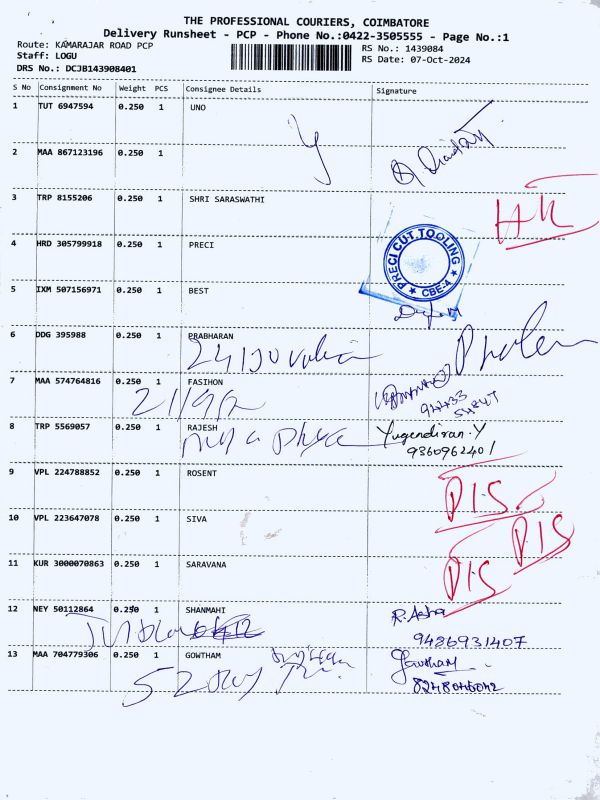 THE PROFESSIONAL COURIERS, COIMBATORE
Delivery Runsheet - PCP - Phone No.:0422-3505555 - Page No.:1
Route: KAMARAJAR ROAD PCP
RS No.: 1439084
Staff: LOGU
RS Date: 07-Oct-2024
DRS No.: DCJB143908401
S No Consignment No Weight PCS Consignee Details Signature
1 TUT 6947594 0.250 1 UNO
2 MAA 867123196 0.250 1
3 TRP 8155206 0.250 1 SHRI SARASWATHI
4 HRD 305799918 0.250 1 PRECI
PRECI CUT TOOLING
★ CBE-4 ★
5 IXM 507156971 0.250 1 BEST
6 DDG 395988 0.250 1 PRABHARAN
7 MAA 574764816 0.250 1 FASIHON
94433
8 TRP 5569057 0.250 1 RAJESH Yugendiran.Y
9360962401
9 VPL 224788852 0.250 1 ROSENT D/S
10 VPL 223647078 0.250 1 SIVA D/S
11 KUR 3000070863 0.250 1 SARAVANA D/S
12 NEY 50112864 0.250 1 SHANMAHI R.Asha
9426931407
13 MAA 704779306 0.250 1 GOWTHAM Gowtham
8248046042